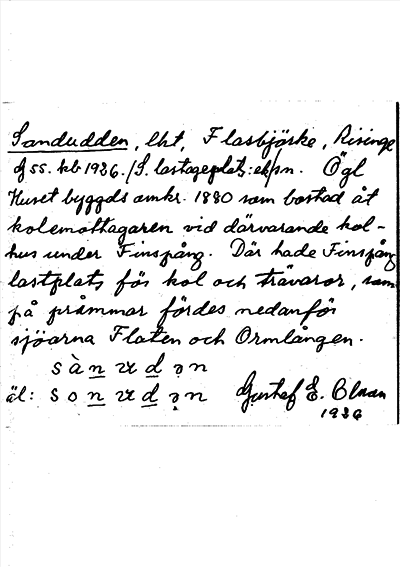 Sandudden, lht, Flasbjörke, Risinge
Jj 55. kb 1936. /S. lastageplats: ek/sn. Ögl
Huset byggds omkr. 1880 som bostad åt
kolemottagaren vid därvarande kol-
hus under Finspång. Där hade Finspång
lastplats för kol och trävaror, som
på pråmmar fördes nedanför
sjöarna Flaten och Ormlången.
sànudən
äl: sonudən Gustaf E.
1936